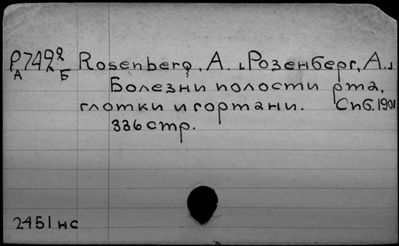 Р7492 Rosenberg, A. [Розенберг, А.]
А Б
Болезни полости рта,
глотки и гортани. Спб. 1901
336 стр.
2451 нс